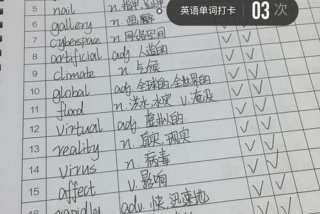 英语单词打卡 03 次
5 nail n. 指甲, 钉子
6 gallery n. 画廊
7 cyberspace n. 网络空间
8 artificial adj. 人造的
9 climate n. 气候
10 global adj. 全球的, 全世界的
11 flood n. 洪水, 水灾 v. 淹没
12 virtual adj. 虚拟的
13 reality n. 真实, 现实
14 virus n. 病毒
15 affect v. 影响
rapidly adv. 快, 迅速地